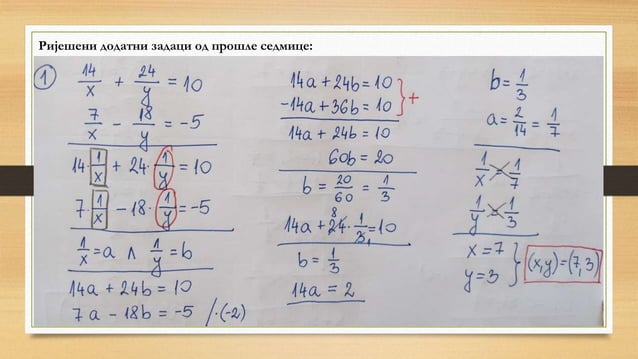 Ријешени додатни задаци од прошле седмице:
1
14/x + 24/y = 10
7/x - 18/y = -5
14·1/x + 24·1/y = 10
7·1/x - 18·1/y = -5
1/x = a ∧ 1/y = b
14a + 24b = 10
7a - 18b = -5 /·(-2)
14a + 24b = 10
-14a + 36b = 10 } +
14a + 24b = 10
60b = 20
b = 20/60 = 1/3
14a + 24·1/3 = 10
8
1
b = 1/3
14a = 2
b = 1/3
a = 2/14 = 1/7
1/x = 1/7
1/y = 1/3
x = 7
y = 3 } (x,y) = (7,3)